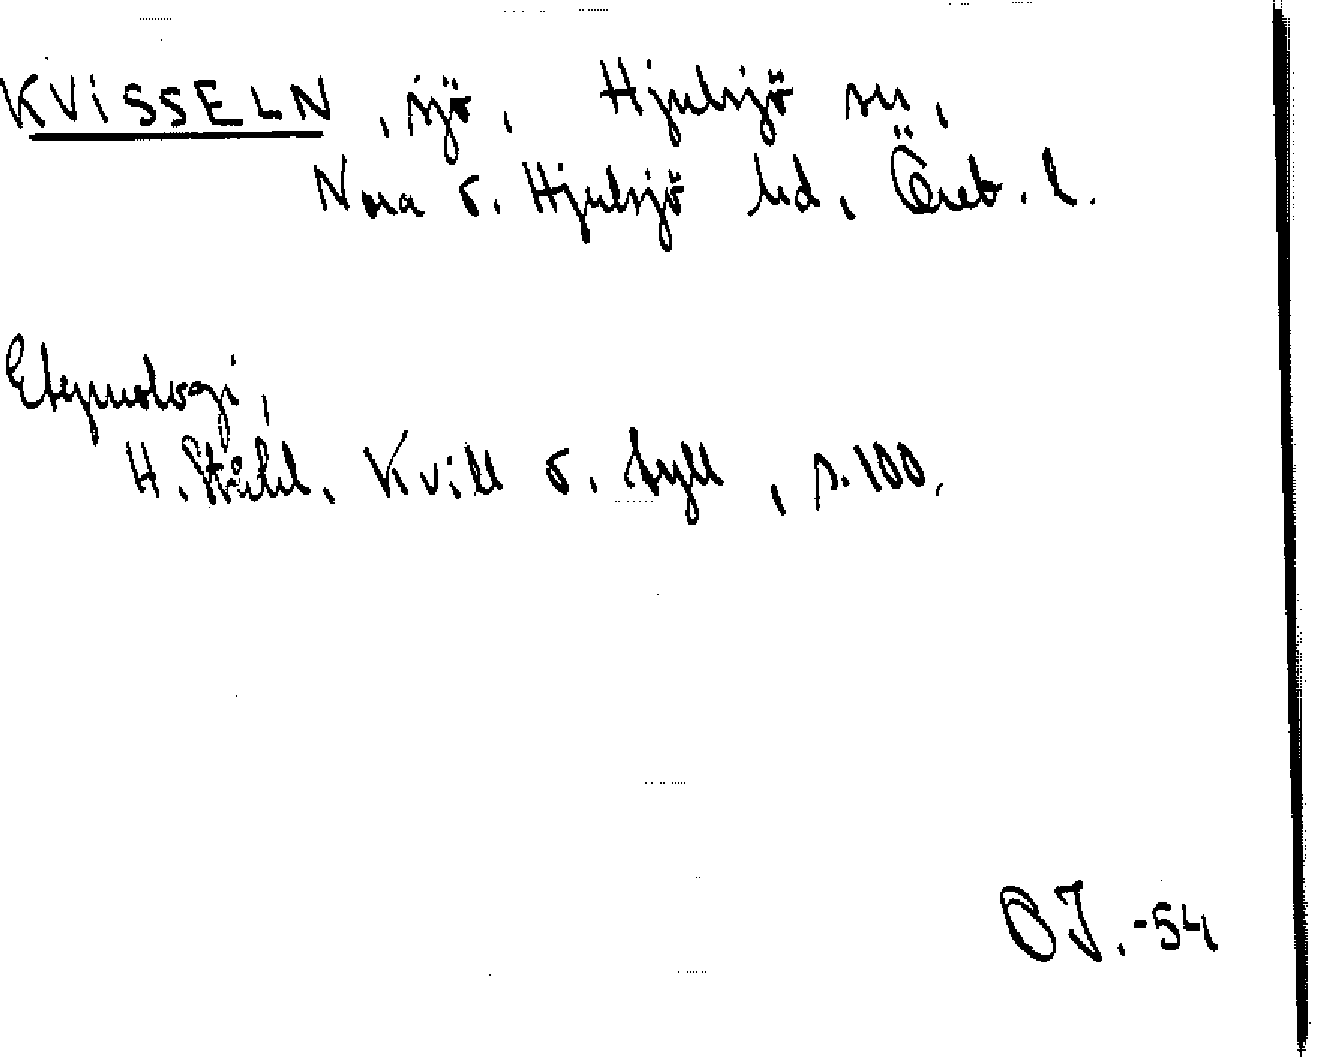 KVISSELN, sjö, Hjulsjö sn,
Nora o. Hjulsjö hd, Öreb. l.
Etymologi,
H. Ståhl, Kvill o. Tyll, s. 100.
OJ. -54